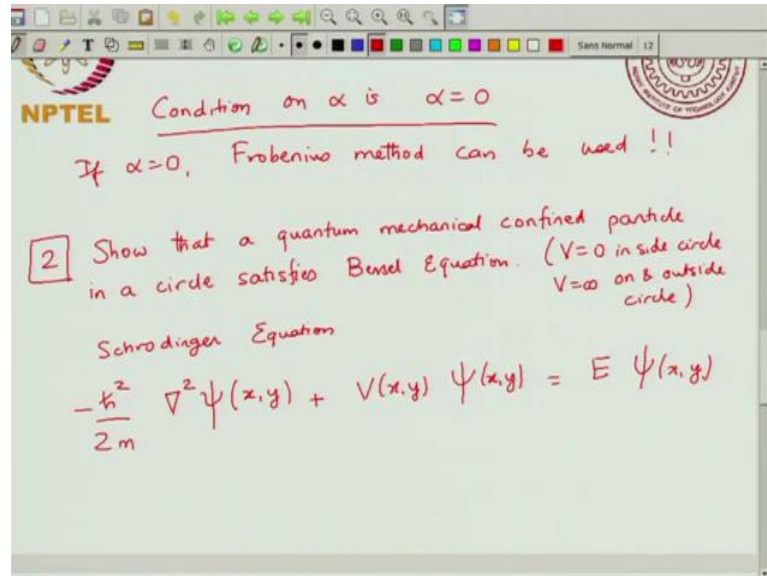 Sans Normal 12
NPTEL
Condition on α is α = 0
If α=0, Frobenius method can be used !!
2 Show that a quantum mechanical confined particle
in a circle satisfies Bessel Equation. (V=0 in side circle
V=∞ on & outside
circle)
Schrodinger Equation
-ħ²/2m ∇²ψ(x,y) + V(x,y) ψ(x,y) = E ψ(x,y)